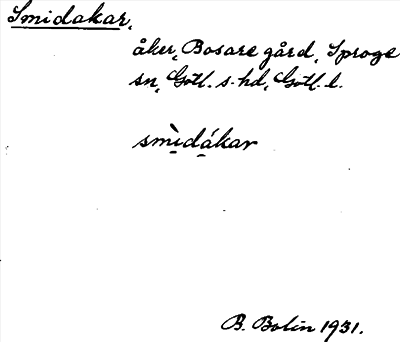 Smidakar,
åker, Bosare gård, Sproge
sn, Gotl. s. hd, Gotl. l.
smìdákar
B. Bolin 1931.